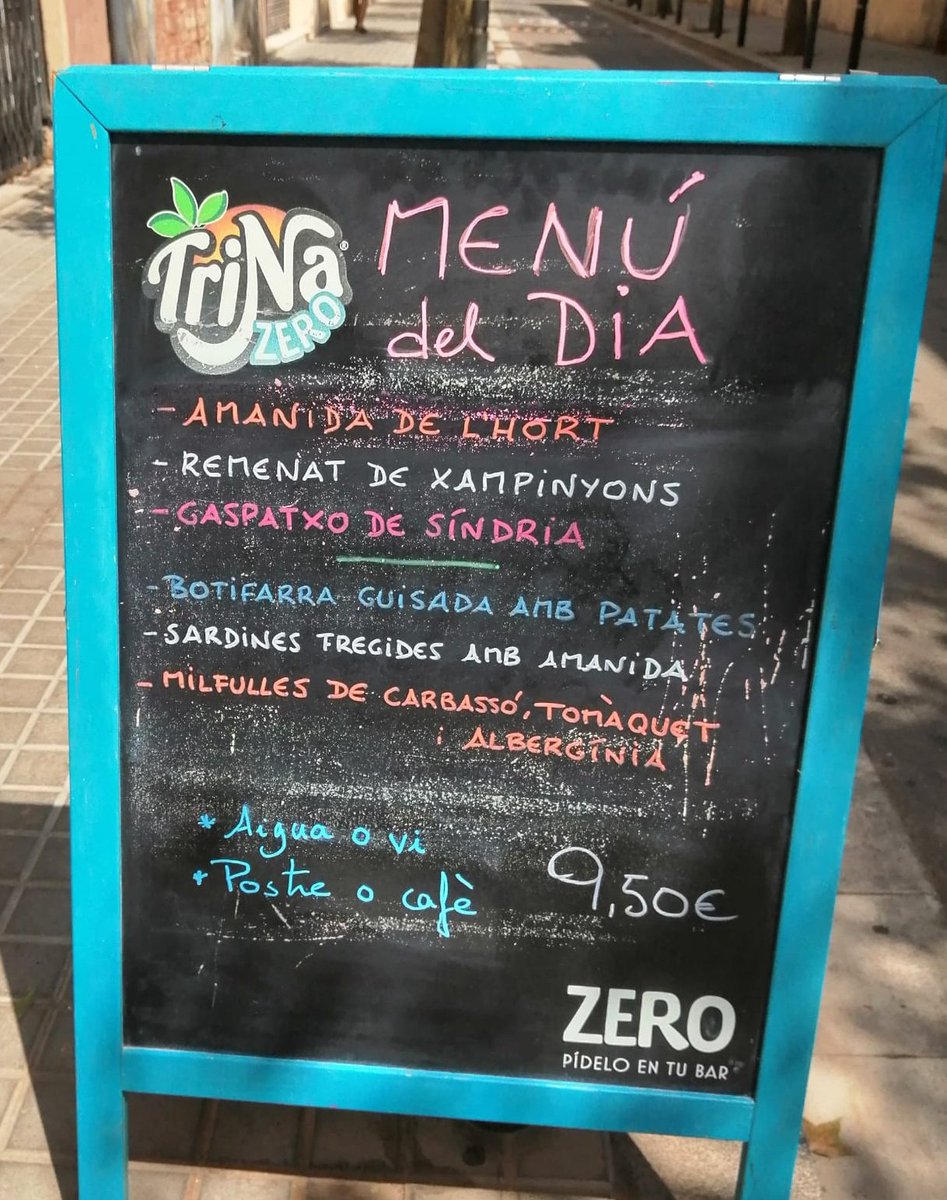 TriNa®
ZERO
MENÚ
del DIA
- AMANIDA DE L'HORT
- REMENAT DE XAMPINYONS
- GASPATXO DE SÍNDRIA
- BOTIFARRA GUISADA AMB PATATES
- SARDINES FREGIDES AMB AMANIDA
- MILFULLES DE CARBASSÓ, TOMÀQUET
i ALBERGÍNIA
* Aigua o vi
* Postre o cafè
9,50€
ZERO
PÍDELO EN TU BAR